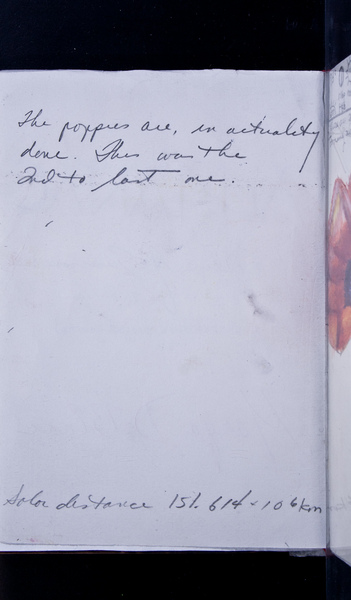 The poppies are, in actuality
done. This was the
2nd to last one.
Solar distance 151.614 × 10⁶ km